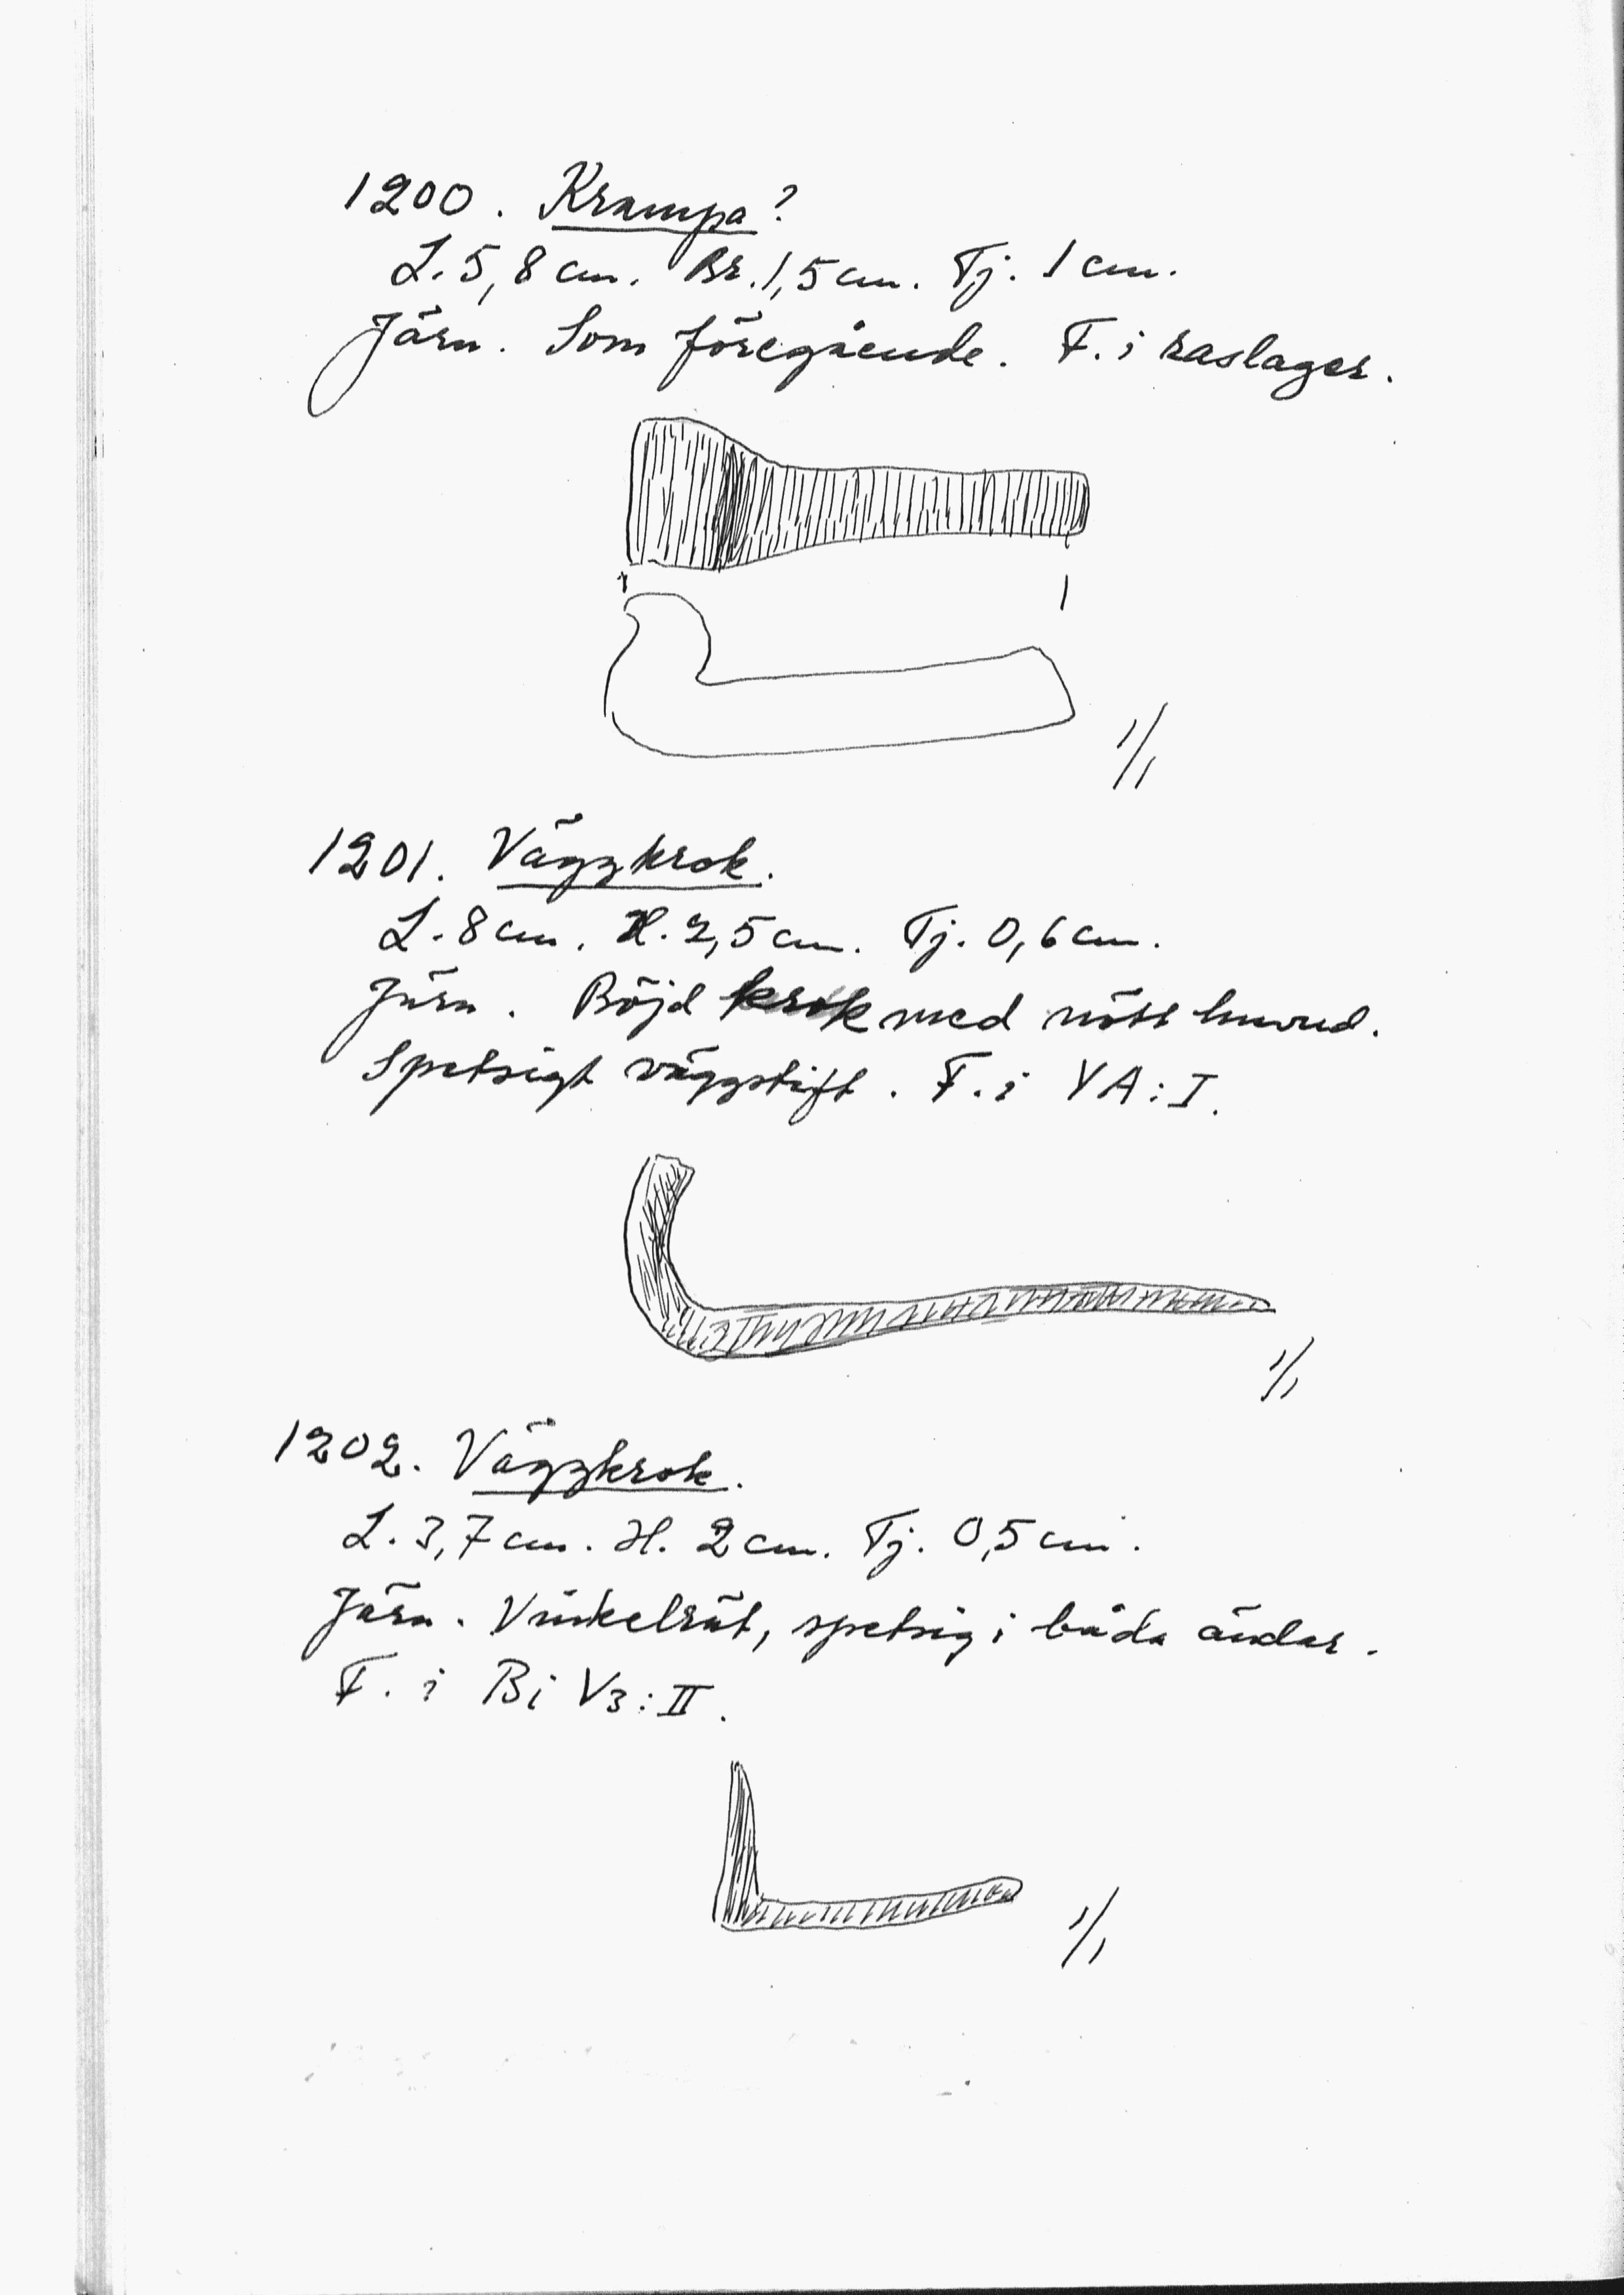 1200. Krampa?
L. 5,8 cm. Br. 1,5 cm. Tj. 1 cm.
Järn. Som föregående. F. i raslager.
1/1
1201. Väggkrok.
L. 8 cm. H. 2,5 cm. Tj. 0,6 cm.
Järn. Böjd krok med nött huvud.
Spetsigt väggstift. F. i VA:I.
1/1
1202. Väggkrok.
L. 3,7 cm. H. 2 cm. Tj. 0,5 cm.
Järn. Vinkelrät, spetsig i båda ändar.
F. i Bi V3:II.
1/1